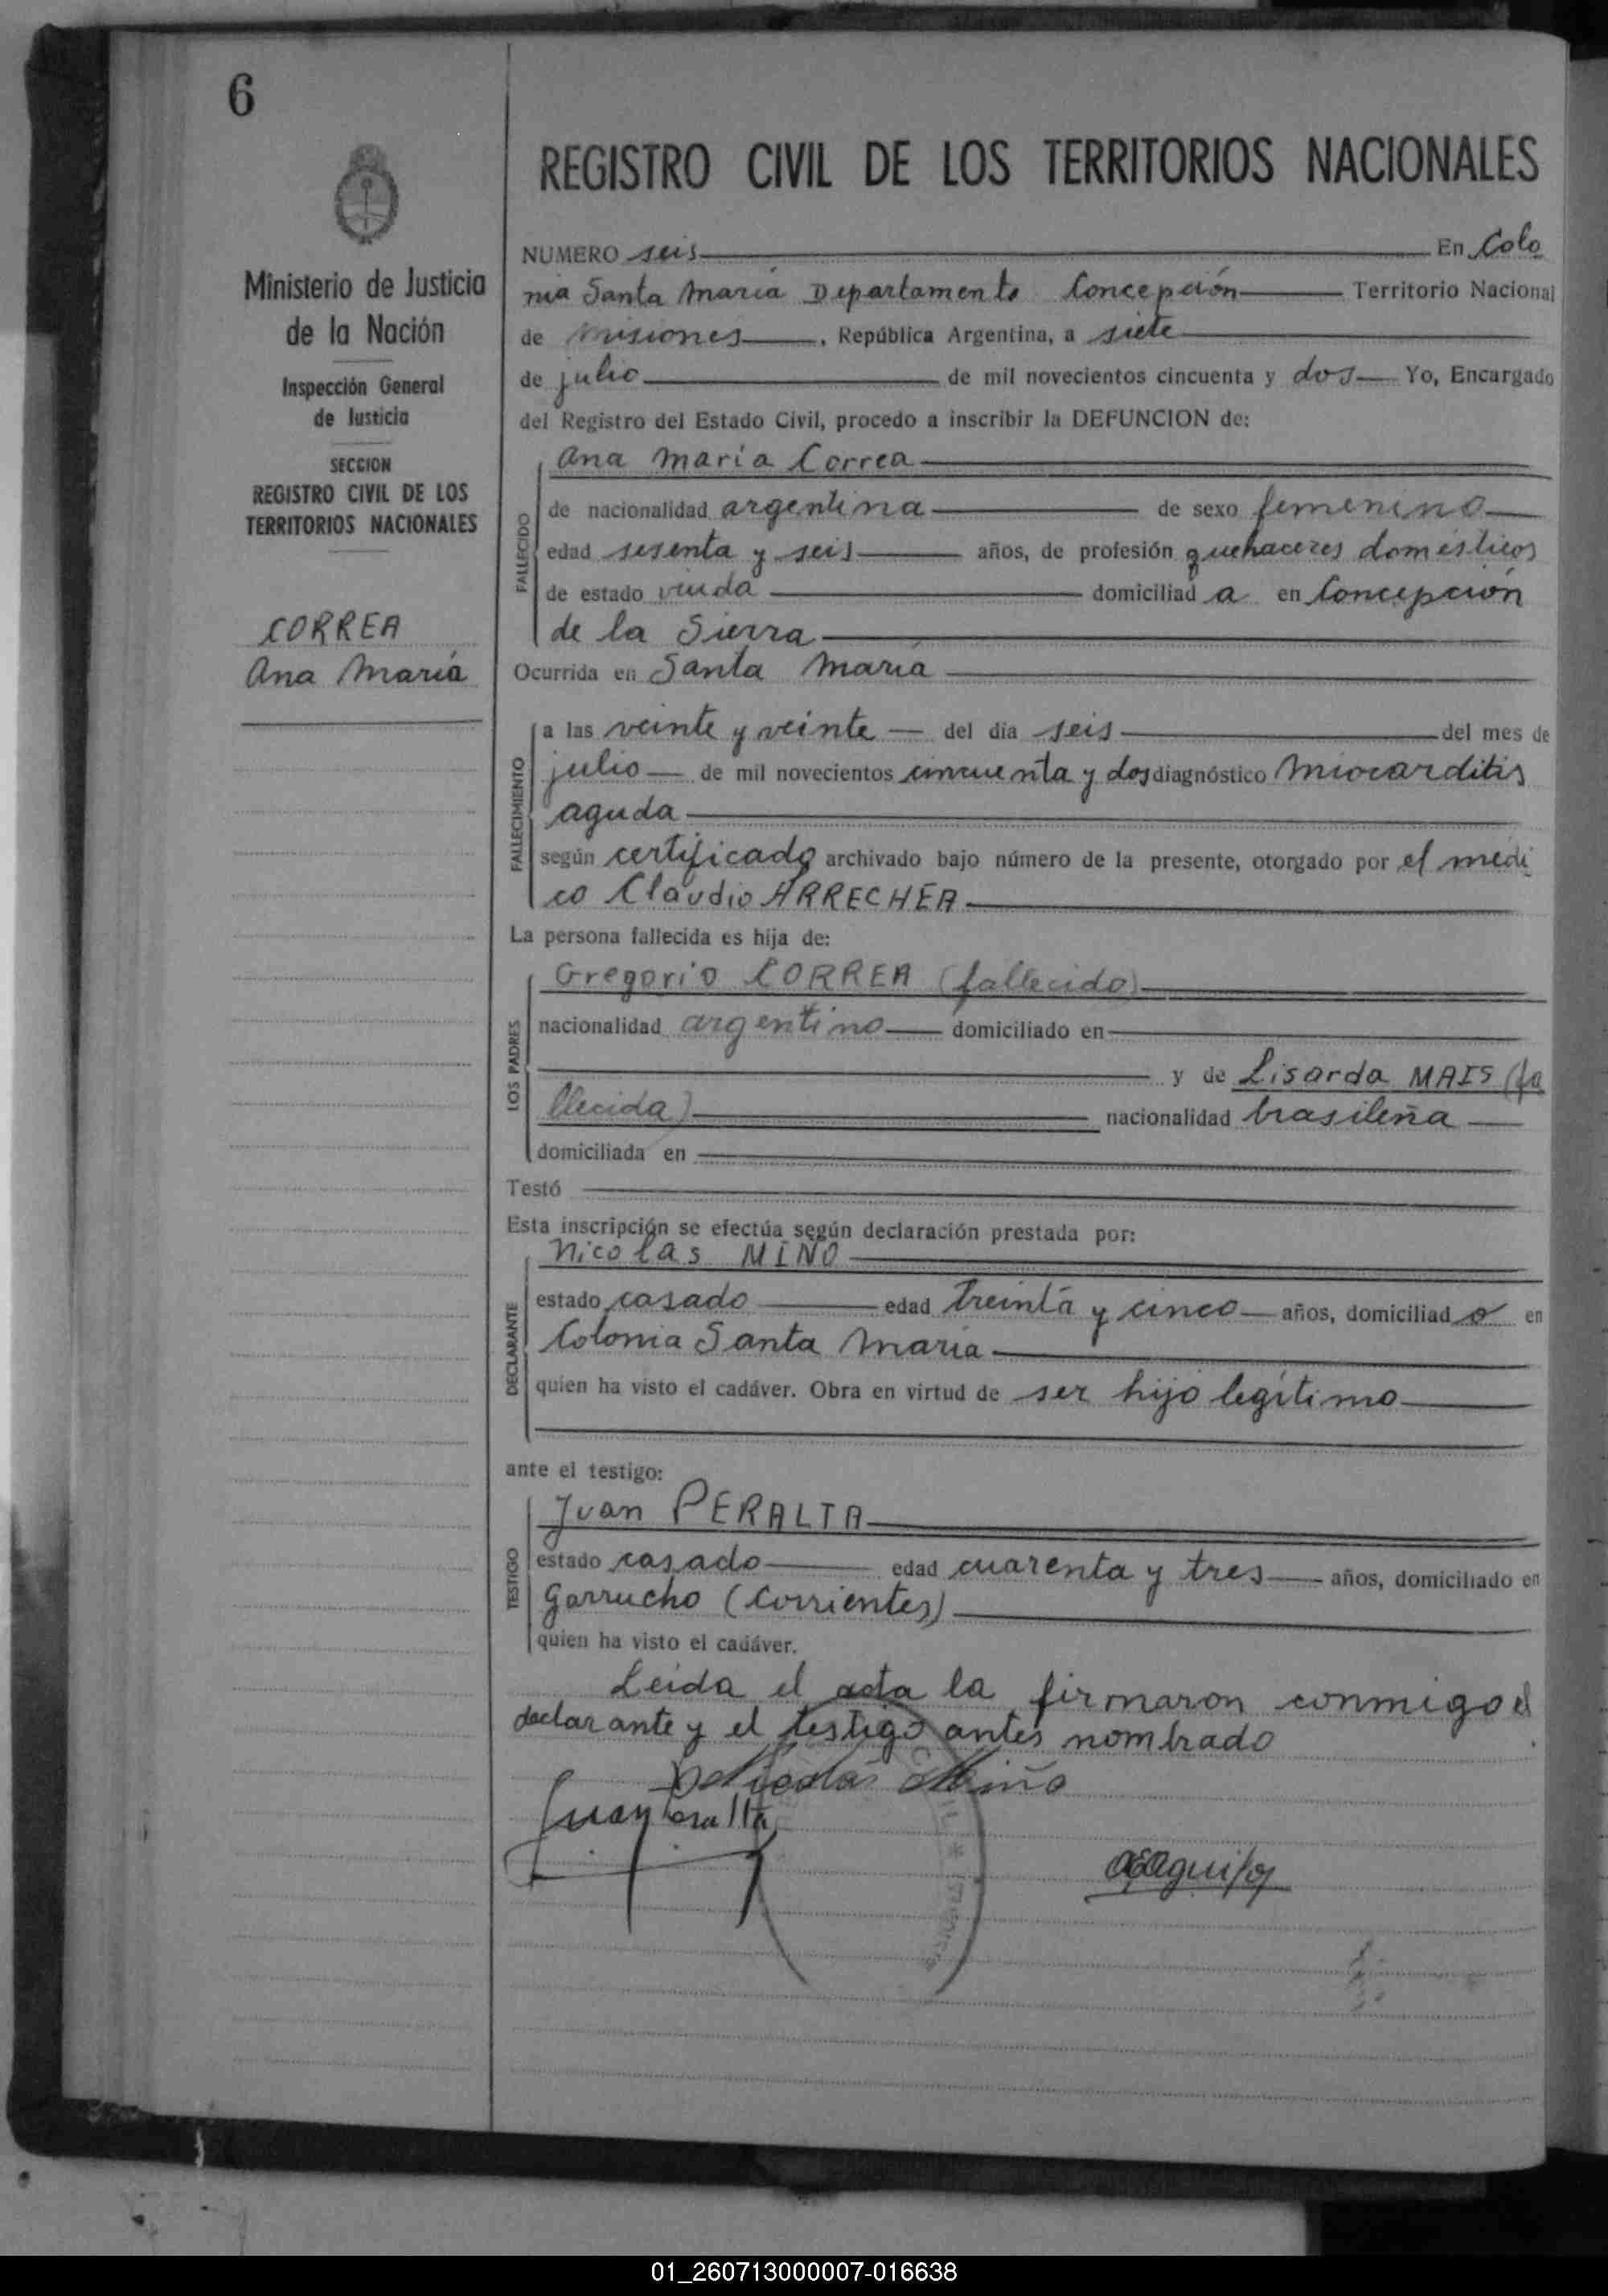 6
REGISTRO CIVIL DE LOS TERRITORIOS NACIONALES
Ministerio de Justicia
de la Nación
Inspección General
de Justicia
SECCION
REGISTRO CIVIL DE LOS
TERRITORIOS NACIONALES
CORREA
Ana María
NUMERO seis En Colo
nia Santa María Departamento Concepción Territorio Nacional
de Misiones, República Argentina, a siete
de julio de mil novecientos cincuenta y dos Yo, Encargado
del Registro del Estado Civil, procedo a inscribir la DEFUNCION de:
FALLECIDO
Ana María Correa
de nacionalidad argentina de sexo femenino
edad sesenta y seis años, de profesión quehaceres domésticos
de estado viuda domiciliad a en Concepción
de la Sierra
Ocurrida en Santa María
FALLECIMIENTO
a las veinte y veinte del día seis del mes de
julio de mil novecientos cincuenta y dos diagnóstico Miocarditis
aguda
según certificado archivado bajo número de la presente, otorgado por el médi
co Claudio ARRECHEA
La persona fallecida es hija de:
LOS PADRES
Gregorio CORREA (fallecido)
nacionalidad argentino domiciliado en
y de Lisarda MAIS (fa
llecida) nacionalidad brasileña
domiciliada en
Testó
Esta inscripción se efectúa según declaración prestada por:
DECLARANTE
Nicolas MIÑO
estado casado edad treinta y cinco años, domiciliad o en
Colonia Santa María
quien ha visto el cadáver. Obra en virtud de ser hijo legítimo
ante el testigo:
TESTIGO
Juan PERALTA
estado casado edad cuarenta y tres años, domiciliado en
Garrucho (Corrientes)
quien ha visto el cadáver.
Leída el acta la firmaron conmigo el
declarante y el testigo antes nombrado
Nicolás Miño
Juan Peralta
01_260713000007-016638